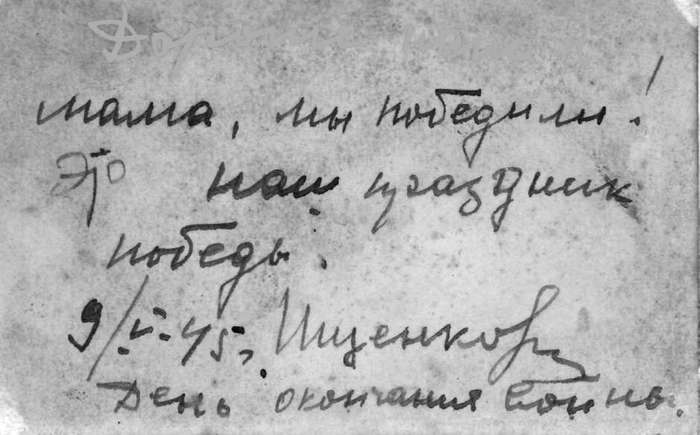 мама, мы победили!
Это наш праздник
победы.
9/V-45г. Ищенко
День окончания войны.